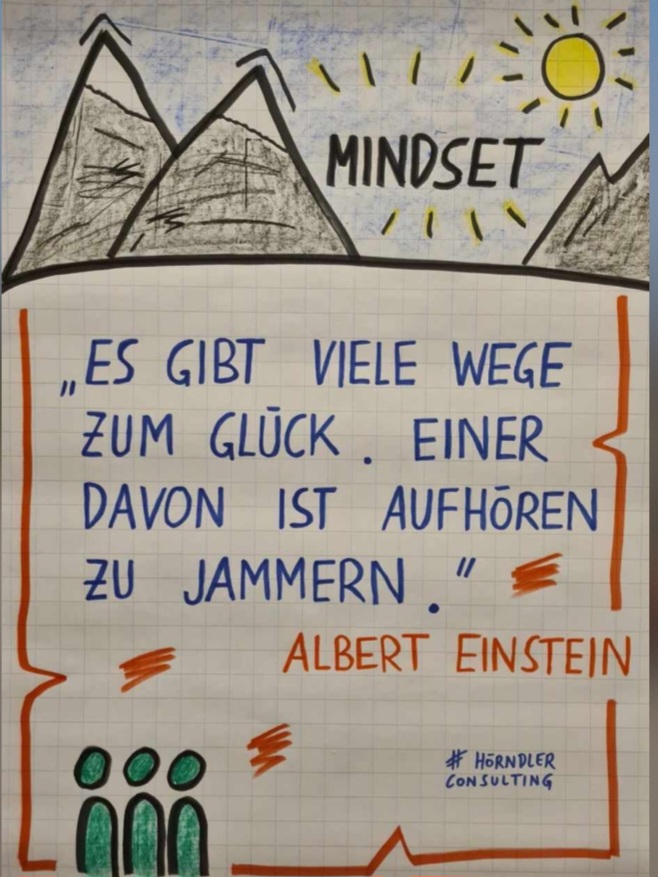 MINDSET
„ES GIBT VIELE WEGE
ZUM GLÜCK. EINER
DAVON IST AUFHÖREN
ZU JAMMERN."
ALBERT EINSTEIN
# HÖRNDLER
CONSULTING